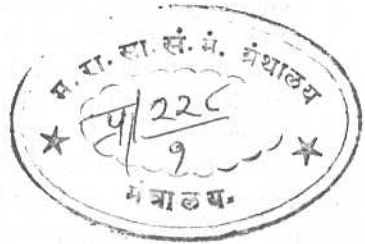 म. रा. सा. सं. मं. ग्रंथालय
पु/२२८
१
मंत्रालय.